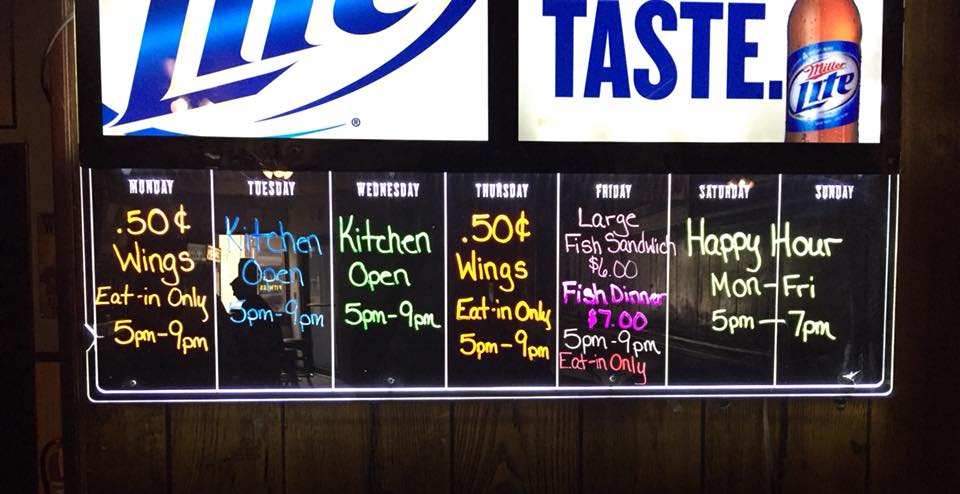 Lite
®
TASTE.
Miller
Lite
MONDAY
.50¢
Wings
Eat-in Only
5pm-9pm
TUESDAY
Kitchen
Open
5pm-9pm
WEDNESDAY
Kitchen
Open
5pm-9pm
THURSDAY
.50¢
Wings
Eat-in Only
5pm-9pm
FRIDAY
Large
Fish Sandwich
$6.00
Fish Dinner
$7.00
5pm-9pm
Eat-in Only
SATURDAY SUNDAY
Happy Hour
Mon-Fri
5pm-7pm